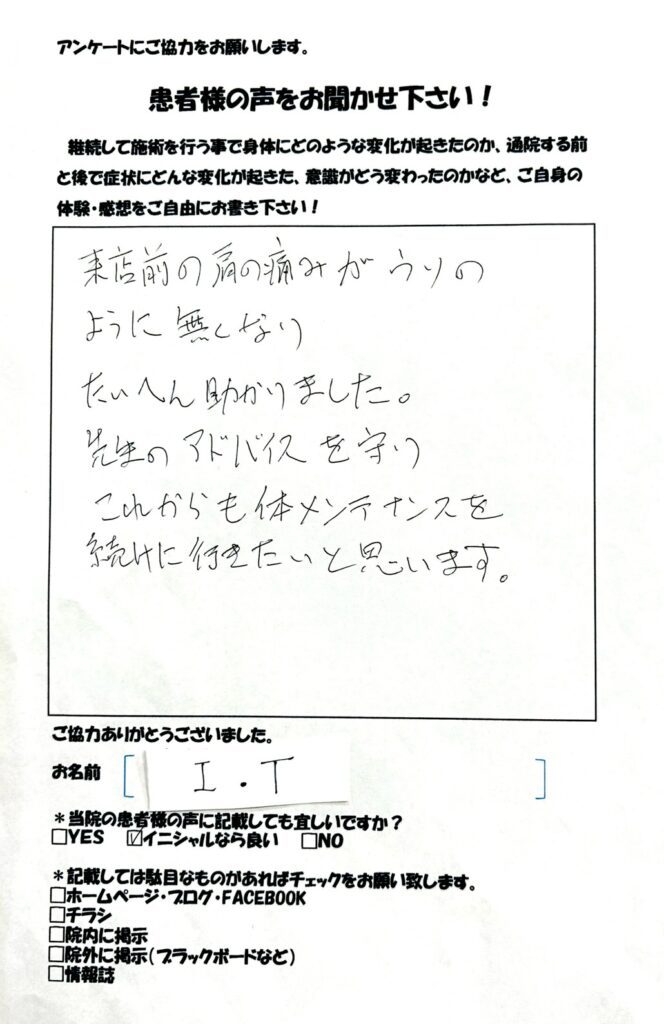 アンケートにご協力をお願いします。
患者様の声をお聞かせ下さい！
継続して施術を行う事で身体にどのような変化が起きたのか、通院する前
と後で症状にどんな変化が起きた、意識がどう変わったのかなど、ご自身の
体験・感想をご自由にお書き下さい！
来店前の肩の痛みがウソの
ように無くなり
たいへん助かりました。
先生のアドバイスを守り
これからも体メンテナンスを
続けに行きたいと思います。
ご協力ありがとうございました。
お名前 [ I.T ]
＊当院の患者様の声に記載しても宜しいですか？
□YES ☑イニシャルなら良い □NO
＊記載しては駄目なものがあればチェックをお願い致します。
□ホームページ・ブログ・FACEBOOK
□チラシ
□院内に掲示
□院外に掲示（ブラックボードなど）
□情報誌